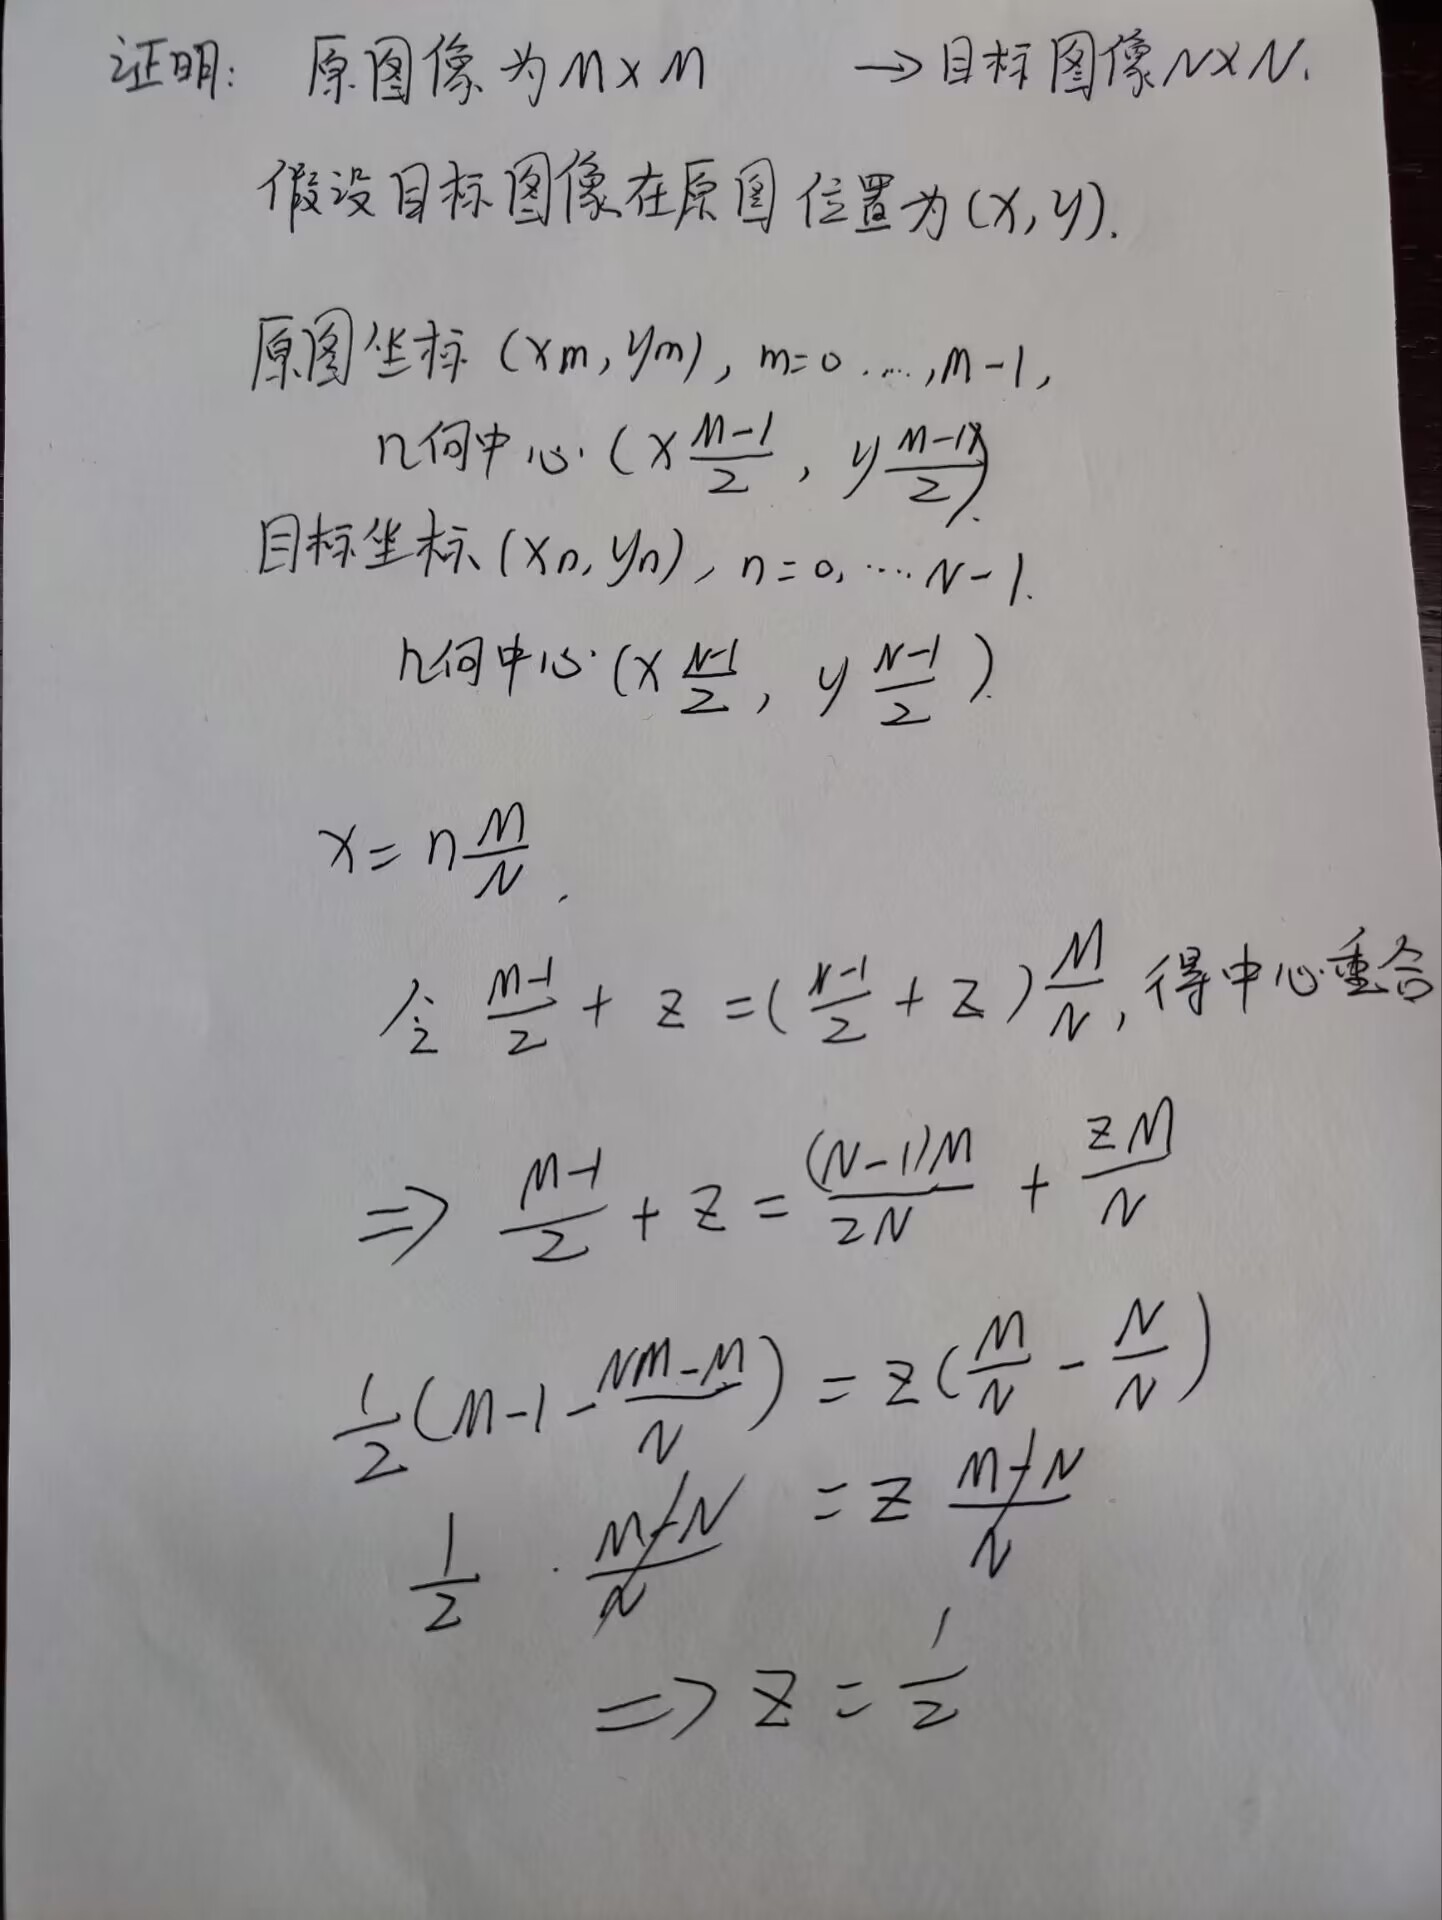 证明: 原图像为M×M →目标图像N×N.
假设目标图像在原图位置为(x,y).
原图坐标(xm,ym), m=0....,M-1,
几何中心(x\frac{M-1}{2}, y\frac{M-1}{2}).
目标坐标(xn,yn), n=0,....N-1.
几何中心(x\frac{N-1}{2}, y\frac{N-1}{2}).
x=n\frac{M}{N}.
令 \frac{M-1}{2}+z=(\frac{N-1}{2}+z)\frac{M}{N}, 得中心重合
⇒ \frac{M-1}{2}+z=\frac{(N-1)M}{2N}+\frac{zM}{N}
\frac{1}{2}(M-1-\frac{NM-M}{N})=z(\frac{M}{N}-\frac{N}{N})
\frac{1}{2}·\frac{M-N}{N}=z\frac{M-N}{N}
⇒ z=\frac{1}{2}